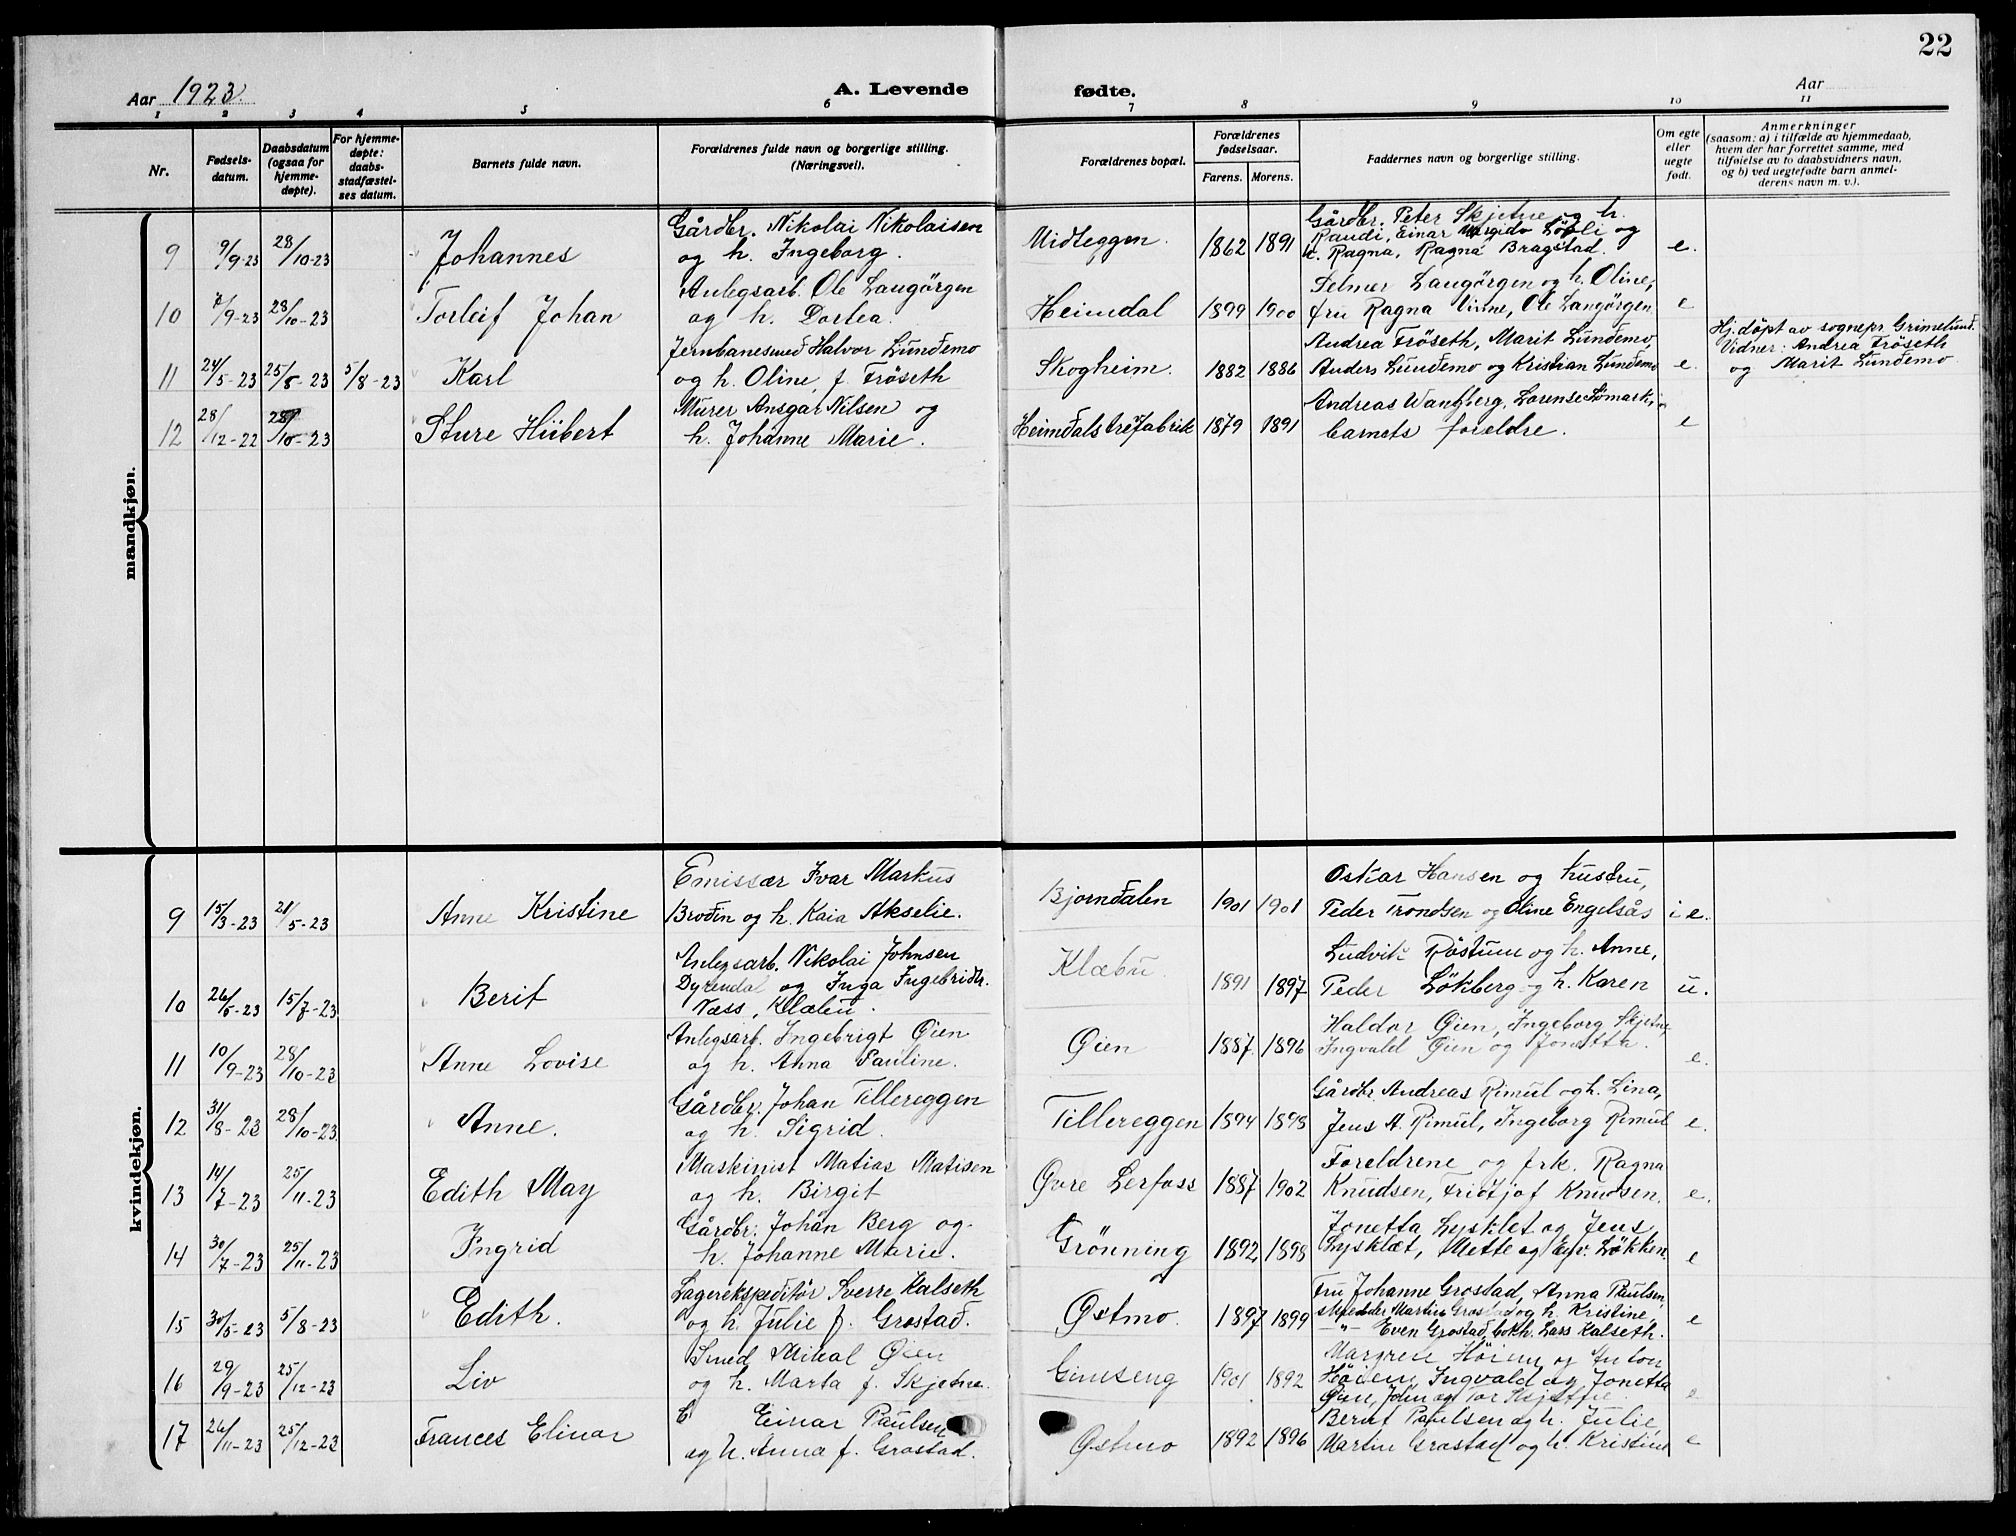 22
Aar 1923. A. Levende fødte. Aar
1 2 3 4 5 6 7 8 9 10 11
Nr.
Fødsels-
datum.
Daabsdatum
(ogsaa for
hjemme-
døpte).
For hjemme-
døpte:
daabs-
stadfæstel-
ses datum.
Barnets fulde navn.
Forældrenes fulde navn og borgerlige stilling.
(Næringsvei).
Forældrenes bopæl.
Forældrenes
fødselsaar.
Farens. Morens.
Faddernes navn og borgerlige stilling.
Om egte
eller
uegte
født.
Anmerkninger
(saasom: a) i tilfælde av hjemmedaab,
hvem der har forrettet samme, med
tilføielse av to daabsvidners navn,
og b) ved uegtefødte barn anmel-
derens navn m. v.).
mandkjøn.
9 9/9-23 28/10-23 Johannes
Gårdbr. Nikolai Nikolaisen
og h. Ingeborg.
Midteggen. 1862 1891
Gårdbr. Peter Skjetne og h.
Randi, Einar og
h. Ragna, Ragna Bragstad.
e.
10 /9-23 28/10-23 Torleif Johan
Anlegsarb. Ole Langörgen
og h. Dortea.
Heimdal 1899 1900
Selmer Langörgen og h. Oline,
fru Ragna Vinne, Ole Langörgen
e
11 24/5-23 25/8-23 5/8-23 Karl
Jernbanesmed Halvor Lundemo
og h. Oline, f. Fröseth
Skogheim. 1882 1886
Andrea Fröseth, Marit Lundemo,
Anders Lundemo og Kristian Lundemo
e.
Hj. döpt av sognepr. Grimelund.
Vidner: Andrea Fröseth
og Marit Lundemo
12 28/12-22 28/10-23 Sture Hübert
Murer Ansgar Nilsen og
h. Johanne Marie.
Heimdals trefabrik 1879 1891
Andreas Wanberg, Lorense
barnets forældre.
e
kvindekjøn.
9 15/3-23 21/5-23 Anne Kristine
Emissær Ivar Markus
Brodin og h. Kaia Akselie.
Bjørndalen 1901 1901
Oskar Hansen og hustru,
Peder Trondsen og Oline Engelsås
i e.
10 26/5-23 15/7-23 Berit
Anlegsarb. Nikolai Johnsen
Dyrendal og Inga Ingebridtr.
Næss, Klæbu.
Klæbu. 1891 1897
Ludvik Röstum og h. Anne,
Peder Lökberg og h. Karen
u.
11 10/9-23 28/10-23 Anne Lovise
Anlegsarb. Ingebrigt Øien
og h. Anna Pauline.
Øien 1887. 1896
Haldor Øien, Ingeborg Skjetne,
Ingvald Øien og Jonetth.
e.
12 31/8-23 28/10-23 Anne.
Gårdbr. Johan Tillereggen
og h. Sigrid.
Tillereggen 1894 1898
Gårdbr. Andreas Rimul og h. Lina,
Jens A. Rimul, Ingeborg Rimul
e.
13 14/7-23 25/11-23 Edith May
Maskinist Matias Matisen
og h. Birgit
Øvre Lerfoss 1887 1902
Foreldrene og frk. Ragna
Knudsen, Fridtjof Knudsen.
e.
14 30/7-23 25/11-23 Ingrid
Gårdbr. Johan Berg og
h. Johanne Marie.
Grönning 1892 1898
Jonetta Lysklet og Jens
Lysklæt, Mette og Edv. Lökken
e
15 30/5-23 5/8-23 Edith.
Lagerekspeditör Sverre Kalseth
og h. Julie f. Grostad.
Østmo. 1897 1899
Fru Johanne Grostad, Anna Paulsen,
skredder Martin Grostad og h. Kristine,
— " — Even Grostad, bokh. Lars Kalseth.
e
16 29/9-23 25/12-23 Liv
Smed Mikal Øien
og h. Marta f. Skjetne.
Gimseng 1901 1892
Margrete Höiem og Anton
Höiem, Ingvald og Jonetta
Øien, John og Tor Skjetne.
e
17 26/11-23 25/12-23 Frances Elinor
Einar Paulsen
og h. Anna f. Grostad.
Østmo 1892 1896
Bernt Paulsen og h. Julie,
Martin Grostad og h. Kristine
e